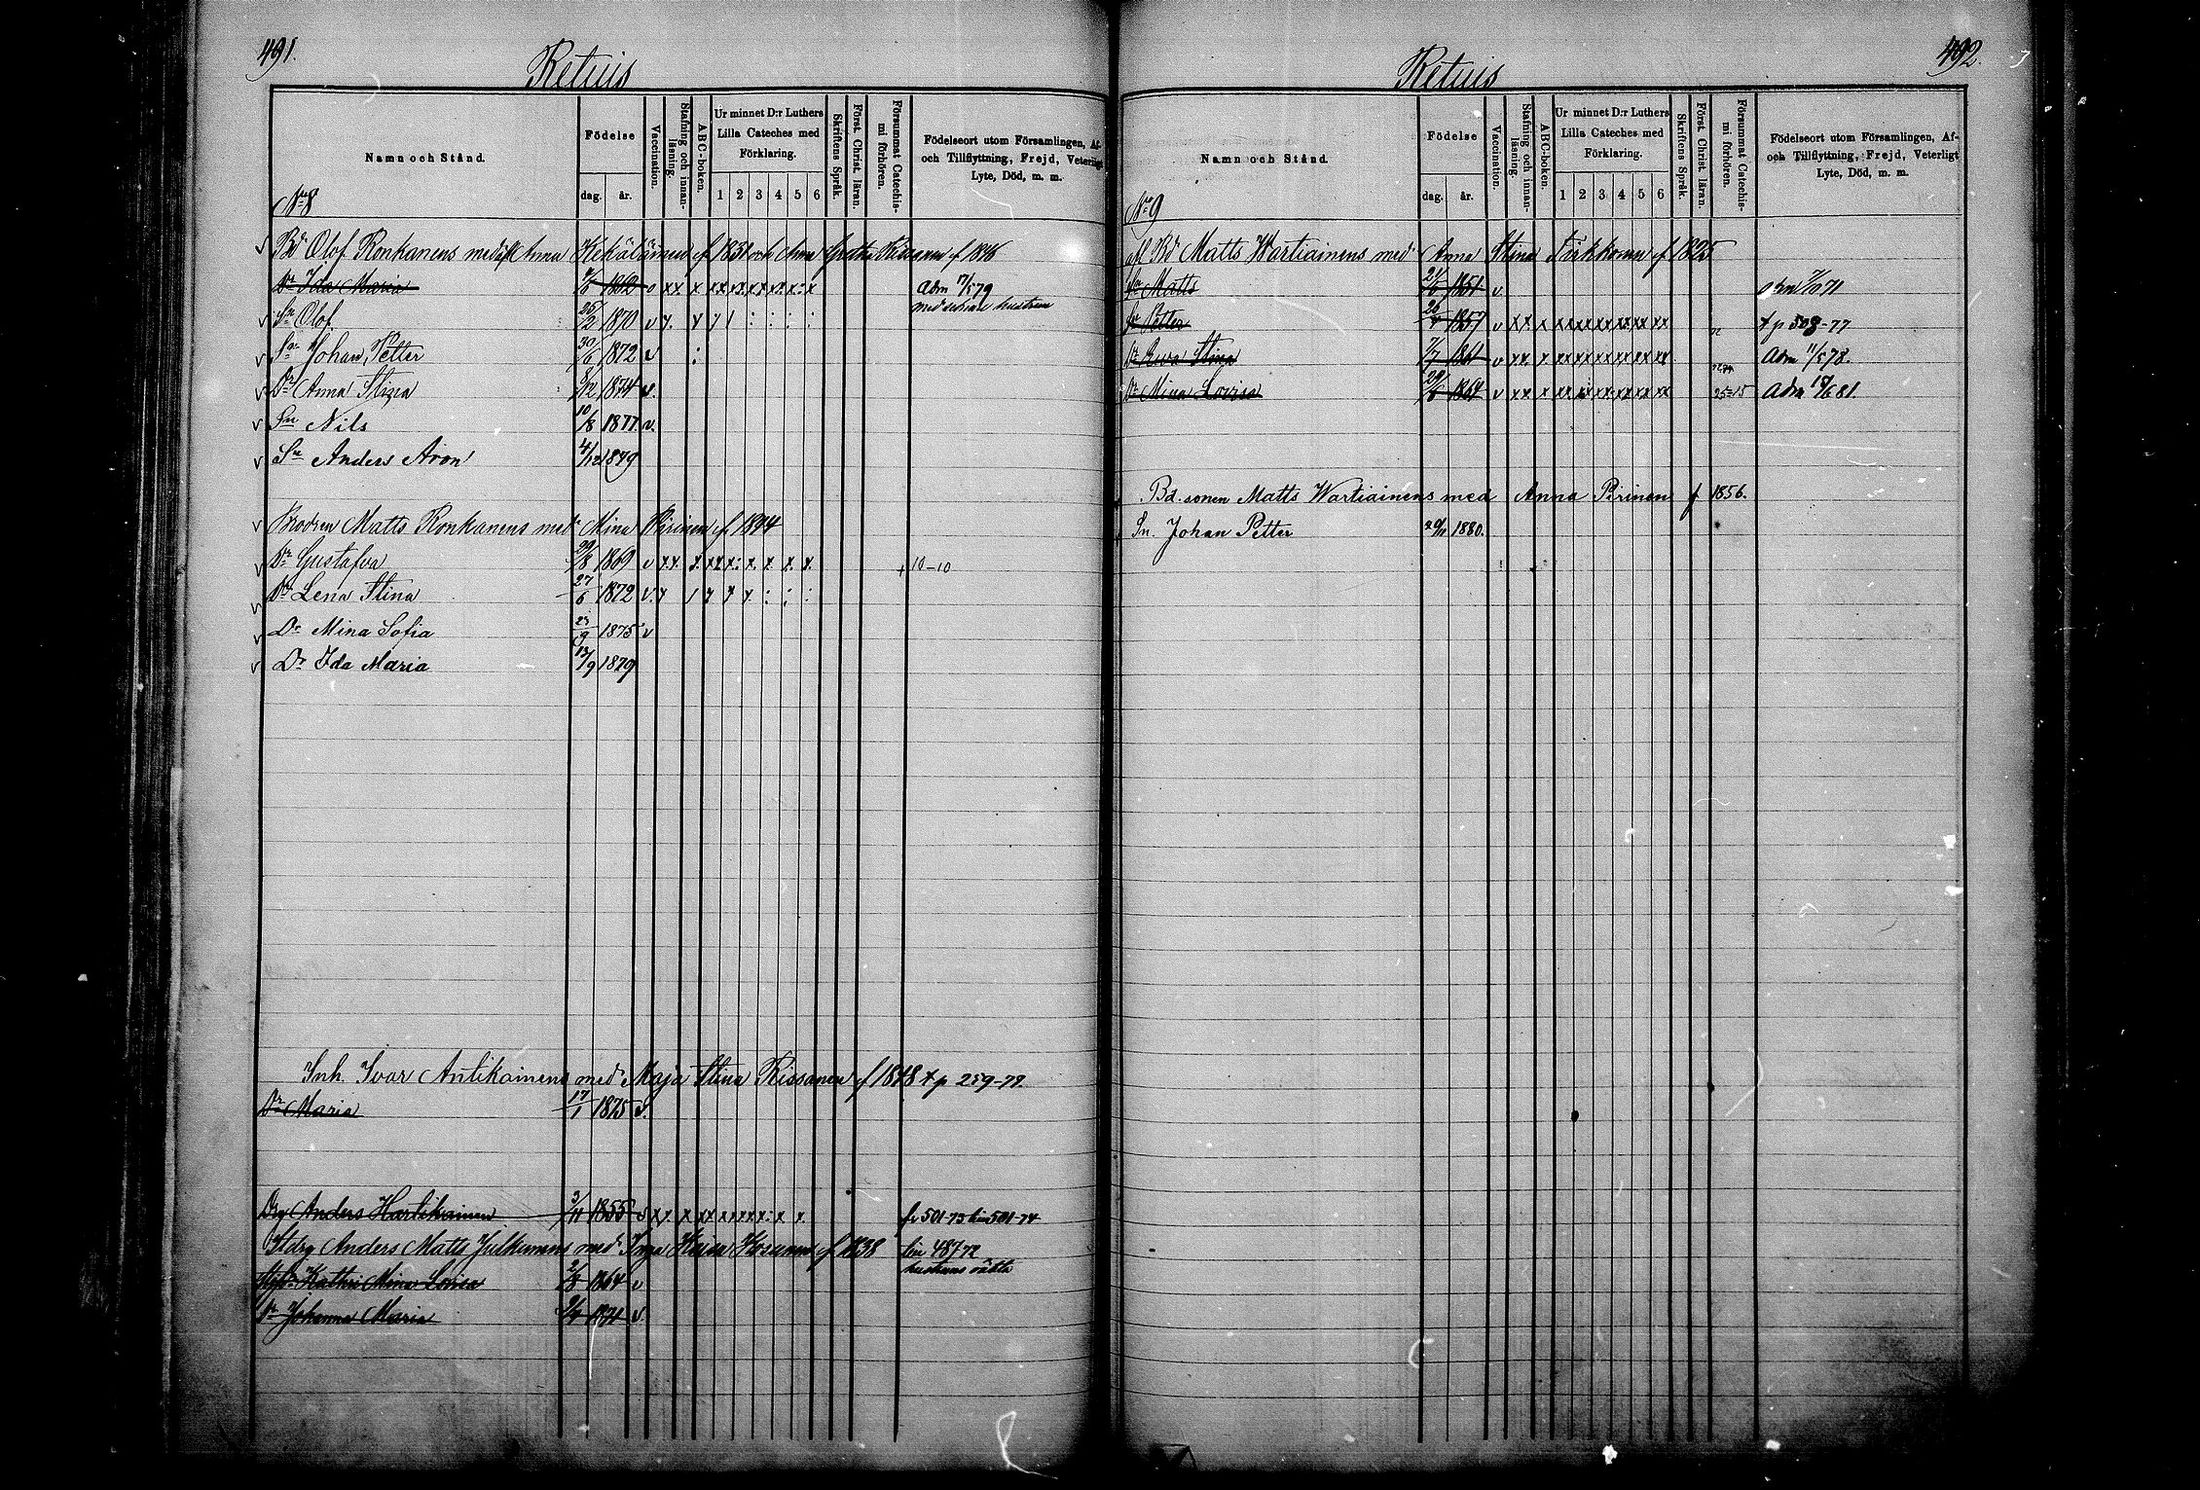 491.
Retuis
Namn och Stånd.
Födelse
dag. år.
Vaccination.
Stafning och innanläsning.
ABC-boken.
Ur minnet D:r Luthers
Lilla Cateches med
Förklaring.
1 2 3 4 5 6
Skriftens Språk.
Först. Christ. läran.
Försummat Catechismi förhören.
Födelseort utom Församlingen, Af-
och Tillflyttning, Frejd, Veterligt
Lyte, Död, m. m.
No 8
Bd Olof Ronkanens med Anna Kekäläinen f 1851 och Anna f 1846
Dr Ida Maria 1862 v xx x Adm 17/5 79
Sn Olof 25/2 1870 v
Sn Johan Petter 30/6 1872 v
Dr Anna Stina 1874 v.
Sn Nils 10/8 1877 v.
Sn Anders Aron 4/12 1879
Brodren Matts Ronkanens med Mina Pirinen f 1844
Dr Gustafva 29/8 1869 v xx x 10-10
Dr Lena Stina 27/6 1872 v.
Dr Mina Sofia 23/9 1875 v
Dr Ida Maria 13/9 1879
Inh. Ivar Antikainens med Maja Stina Rissanen f 1848 t p 259-79
Dr Maria 17/1 1875 v.
Drg Anders Hartikainen 3/11 1855 fr 501-73 hin 501-74
Stdrg Anders Matts Julkunens med Inga Kaisa f 1838 hin 487 72
Kathri Mina Lovisa 2/8 1864 v
Dr Johanna Maria 1871 v.
492.
Retuis
Namn och Stånd.
Födelse
dag. år.
Vaccination.
Stafning och innanläsning.
ABC-boken.
Ur minnet D:r Luthers
Lilla Cateches med
Förklaring.
1 2 3 4 5 6
Skriftens Språk.
Först. Christ. läran.
Försummat Catechismi förhören.
Födelseort utom Församlingen, Af-
och Tillflyttning, Frejd, Veterligt
Lyte, Död, m. m.
No 9
afl Bd Matts Wartiainens med Anna Stina Tirkkonen f 1825
Sn Matts 1851 v
Sn Petter 1857 v xx x t p 508-77
Dr Eva Stina 7/7 1861 v xx x Adm 11/5 78.
Dr Mina Lovisa 1864 v xx x 25-15 Adm 81.
Bd. sonen Matts Wartiainens med Anna Pirinen f 1856.
Sn. Johan Petter 1880.